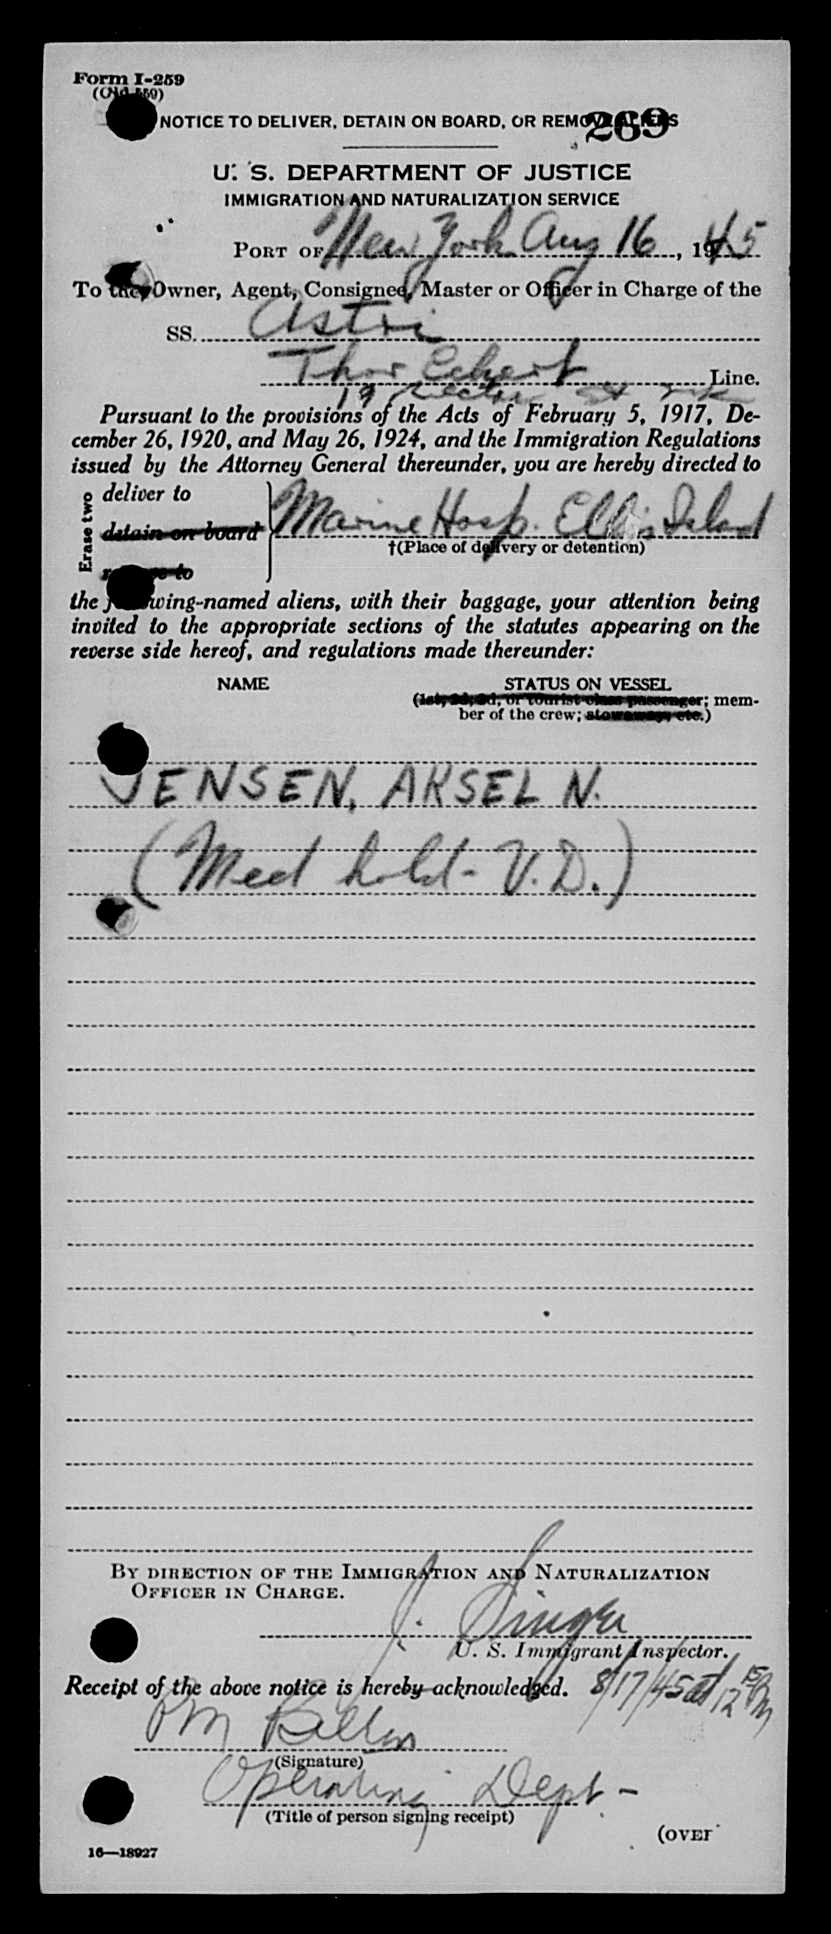 Form I-259
(Old 559)
NOTICE TO DELIVER, DETAIN ON BOARD, OR REMOVE ALIENS
269
U. S. DEPARTMENT OF JUSTICE
IMMIGRATION AND NATURALIZATION SERVICE
PORT OF New York Aug 16, 1945
To the Owner, Agent, Consignee, Master or Officer in Charge of the
SS. Astri
Thor Eckert Line.
19 Rector St
Pursuant to the provisions of the Acts of February 5, 1917, De-
cember 26, 1920, and May 26, 1924, and the Immigration Regulations
issued by the Attorney General thereunder, you are hereby directed to
Erase two
deliver to
detain on board
remove to
Marine Hosp. Ellis Island
†(Place of delivery or detention)
the following-named aliens, with their baggage, your attention being
invited to the appropriate sections of the statutes appearing on the
reverse side hereof, and regulations made thereunder:
NAME
STATUS ON VESSEL
(1st, 2d, 3d, or tourist class passenger; mem-
ber of the crew; stowaway, etc.)
JENSEN, AKSEL N.
(Med hold - V.D.)
BY DIRECTION OF THE IMMIGRATION AND NATURALIZATION
OFFICER IN CHARGE.
J. Singer
U. S. Immigrant Inspector.
Receipt of the above notice is hereby acknowledged. 8/17/45 at 12 15 PM
PM
(Signature)
Operating Dept -
(Title of person signing receipt)
(OVER
16—18927